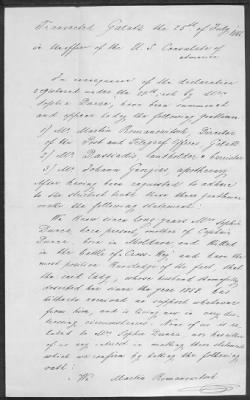 Transacted Galatz the 25th of July 186
in the office of the U. S. Consulate of
America
In consequence of the declaration
registered under the 20th inst. by Mrs
Sophie Dunca, have been summoned
and appear to day the following gentlemen:
1) Mr Martin Romanowitch, Director
of the Post and Telegraf Offices Galatz
2) Mr. Bassiakis landholder & barrister
3) Mr Johann Georgies, apothecary
After having been requested to adhere
to the strictest truth these three gentlemen
make the following statement:
We know since long years Mrs Sophie
Dunca here present, mother of Captain
Dunca, born in Moldavia, and killed
in the battle of Cross Keys and have the
most positive knowledge of the fact that
the said lady, whose husband
deserted her since the year 1858, has
hitherto received no support whatever
from him, and is living now in very dis-
tressing circumstances. None of us is re-
lated to Mrs Sophie Dunca, nor has either
of us any interest in making these statements
which we confirm by taking the following
oath:
"We Martin Romanowitch